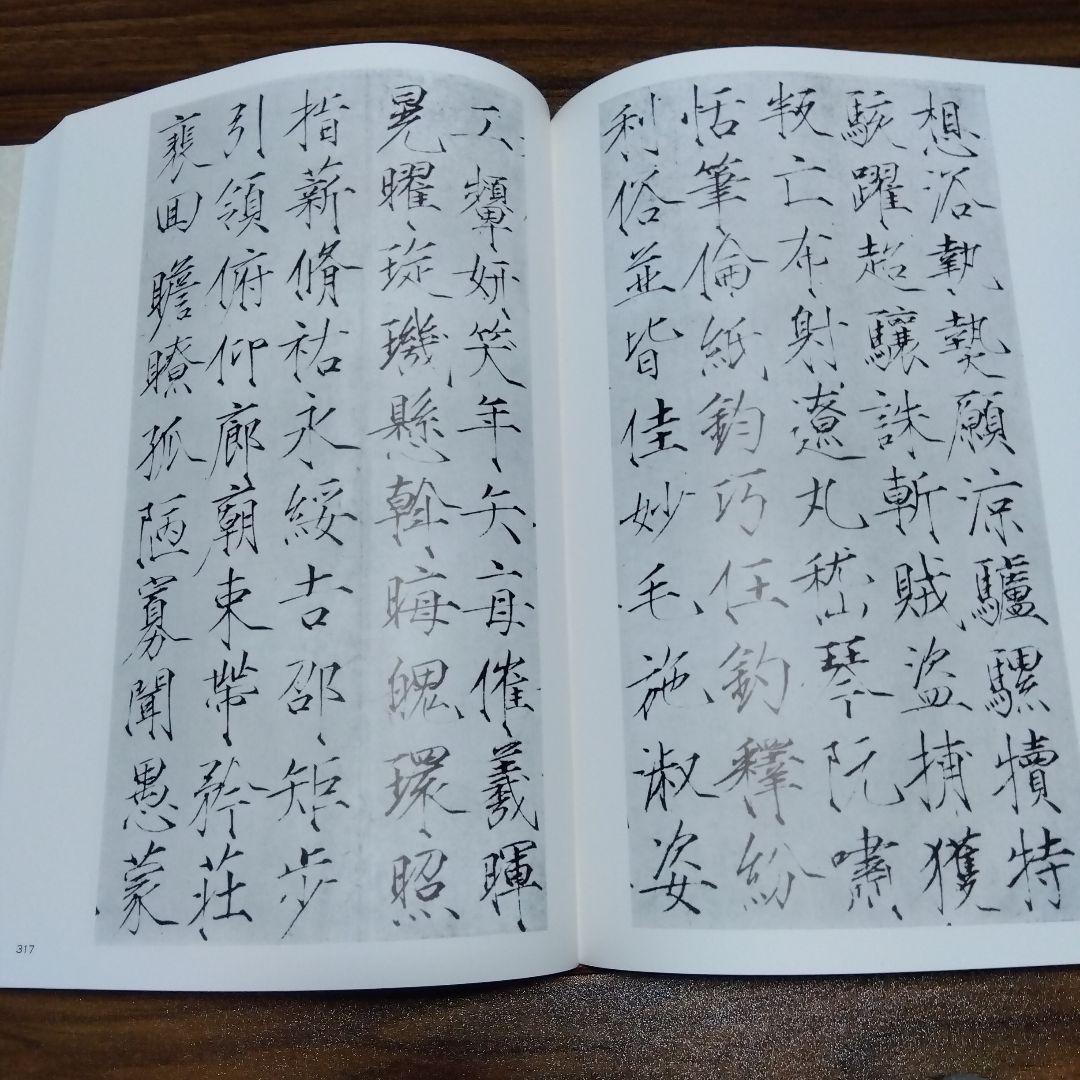 想浴執熱願涼驢騾犢特
駭躍超驤誅斬賊盜捕獲
叛亡布射遼丸嵇琴阮嘯
恬筆倫紙鈞巧任釣釋紛
利俗並皆佳妙毛施淑姿
工顰妍笑年矢每催羲暉
晃曜琁璣懸斡晦魄環照
指薪脩祐永綏吉邵矩步
引領俯仰廊廟束帶矜莊
裵回瞻瞭孤陋寡聞愚蒙
317